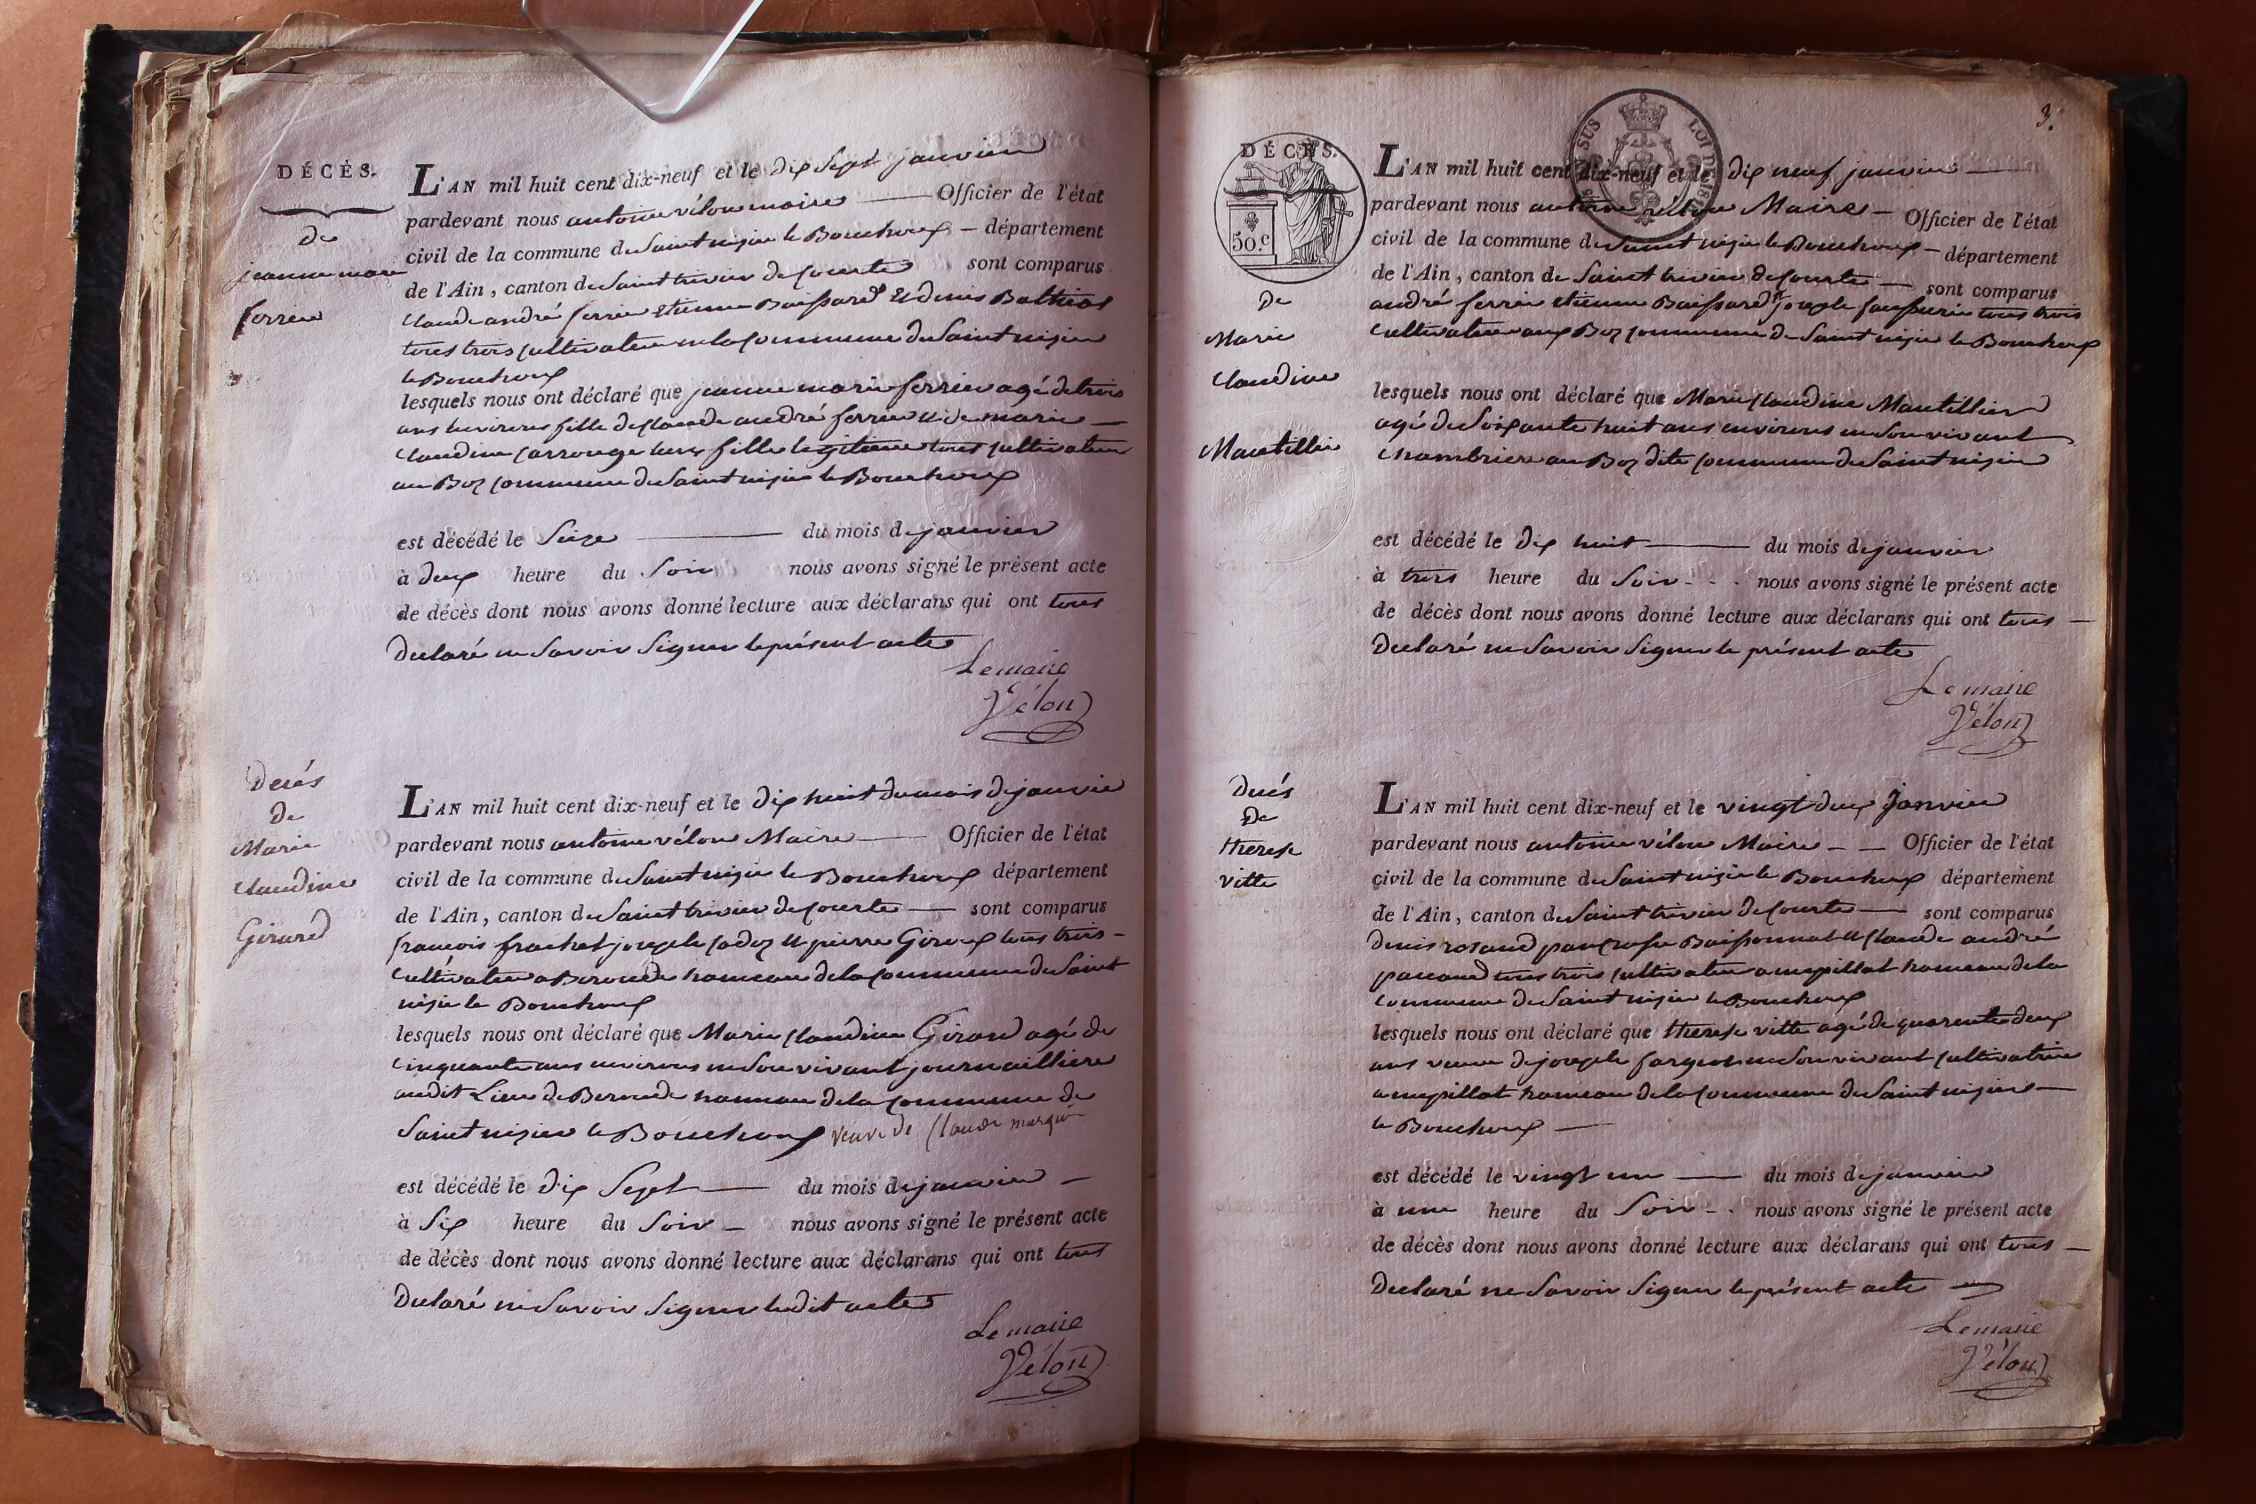 DÉCÈS.
de
jeanne marie
ferrier
L'AN mil huit cent dix-neuf et le dix Sept janvier
pardevant nous antoine vélon maire Officier de l'état
civil de la commune de Saint nizier le Bouchoux département
de l'Ain, canton de Saint trivier de Courte sont comparus
Claude andré ferrier etienne Buissard et denis
tous trois cultivateur en la Commune de Saint nizier
le Bouchoux
lesquels nous ont déclaré que jeanne marie ferrier agé de trois
ans environ fille de Claude andré ferrier et de marie
Claudine fille legitime tous cultivateur
au Boz Commune de Saint nizier le Bouchoux
est décédé le Seize du mois de janvier
à deux heure du Soir nous avons signé le présent acte
de décès dont nous avons donné lecture aux déclarans qui ont tous
Declaré ne Savoir Signer le présent acte
Le maire
Vélon
Decés
de
Marie
Claudine
Girard
L'AN mil huit cent dix-neuf et le dix huit du mois de janvier
pardevant nous antoine vélon Maire Officier de l'état
civil de la commune de Saint nizier le Bouchoux département
de l'Ain, canton de Saint trivier de Courte sont comparus
françois frachet joseph Cadoz et pierre Giroux tous trois
Cultivateur a Beroude hameau de la Commune de Saint
nizier le Bouchoux
lesquels nous ont déclaré que Marie Claudine Girard agé de
cinquante ans environ en Son vivant journailliere
audit Lieu de Beroude hameau de la Commune de
Saint nizier le Bouchoux veuve de Claude
est décédé le dix Sept du mois de janvier
à Six heure du Soir nous avons signé le présent acte
de décès dont nous avons donné lecture aux déclarans qui ont tous
Declaré ne Savoir Signer ledit acte
Le maire
Vélon
3.
DÉCÈS.
50.c
LOI DE 1816
de
Marie
Claudine
Mantillier
L'AN mil huit cent dix-neuf et le dix neuf janvier
pardevant nous antoine vélon Maire Officier de l'état
civil de la commune de Saint nizier le Bouchoux département
de l'Ain, canton de Saint trivier de Courte sont comparus
andré ferrier etienne Buissard et joseph tous trois
Cultivateur aux Boz Commune de Saint nizier le Bouchoux
lesquels nous ont déclaré que Marie Claudine Mantillier
agé de Soixante huit ans environ en Son vivant
Chambriere au Boz dite Commune de Saint nizier
est décédé le dix huit du mois de janvier
à trois heure du Soir nous avons signé le présent acte
de décès dont nous avons donné lecture aux déclarans qui ont tous
Declaré ne Savoir Signer le présent acte
Le maire
Vélon
Decés
de
therese
vitte
L'AN mil huit cent dix-neuf et le vingt deux Janvier
pardevant nous antoine vélon Maire Officier de l'état
civil de la commune de Saint nizier le Bouchoux département
de l'Ain, canton de Saint trivier de Courte sont comparus
denis rosand Buissonnat et Claude andré
pacaud tous trois Cultivateur a hameau de la
Commune de Saint nizier le Bouchoux
lesquels nous ont déclaré que therese vitte agé de quarente deux
ans veuve de joseph fargeot en Son vivant Cultivatrice
a hameau de la Commune de Saint nizier
le Bouchoux
est décédé le vingt un du mois de janvier
à une heure du Soir nous avons signé le présent acte
de décès dont nous avons donné lecture aux déclarans qui ont tous
Declaré ne Savoir Signer le présent acte
Le maire
Vélon